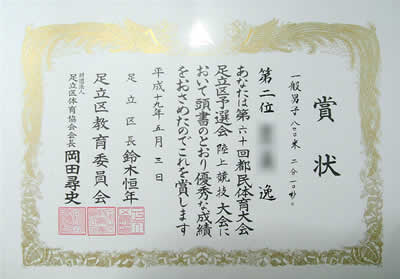 賞状
一般男子八〇〇米 二分一〇秒〇
第二位
逸
あなたは第六十回都民体育大会
足立区予選会陸上競技大会に
おいて頭書のとおり優秀な成績
をおさめたのでこれを賞します
平成十九年五月三日
足立区長 鈴木恒年
足立区教育委員会
財団法人
足立区体育協会会長 岡田尋史